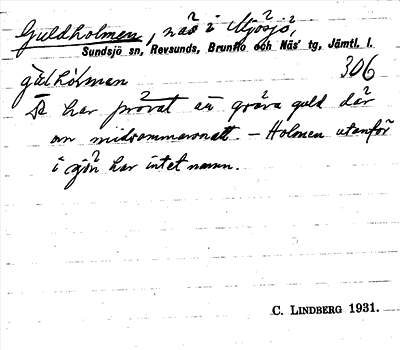 Guldholmen, näs i Mjösjö,
Sundsjö sn, Revsunds, Brunflo och Näs' tg, Jämtl. l.
gu̇lhɔ́lman 306
De har prövat att gräva guld där
om midsommarnatt. – Holmen utanför
i sjön har intet namn.
C. LINDBERG 1931.